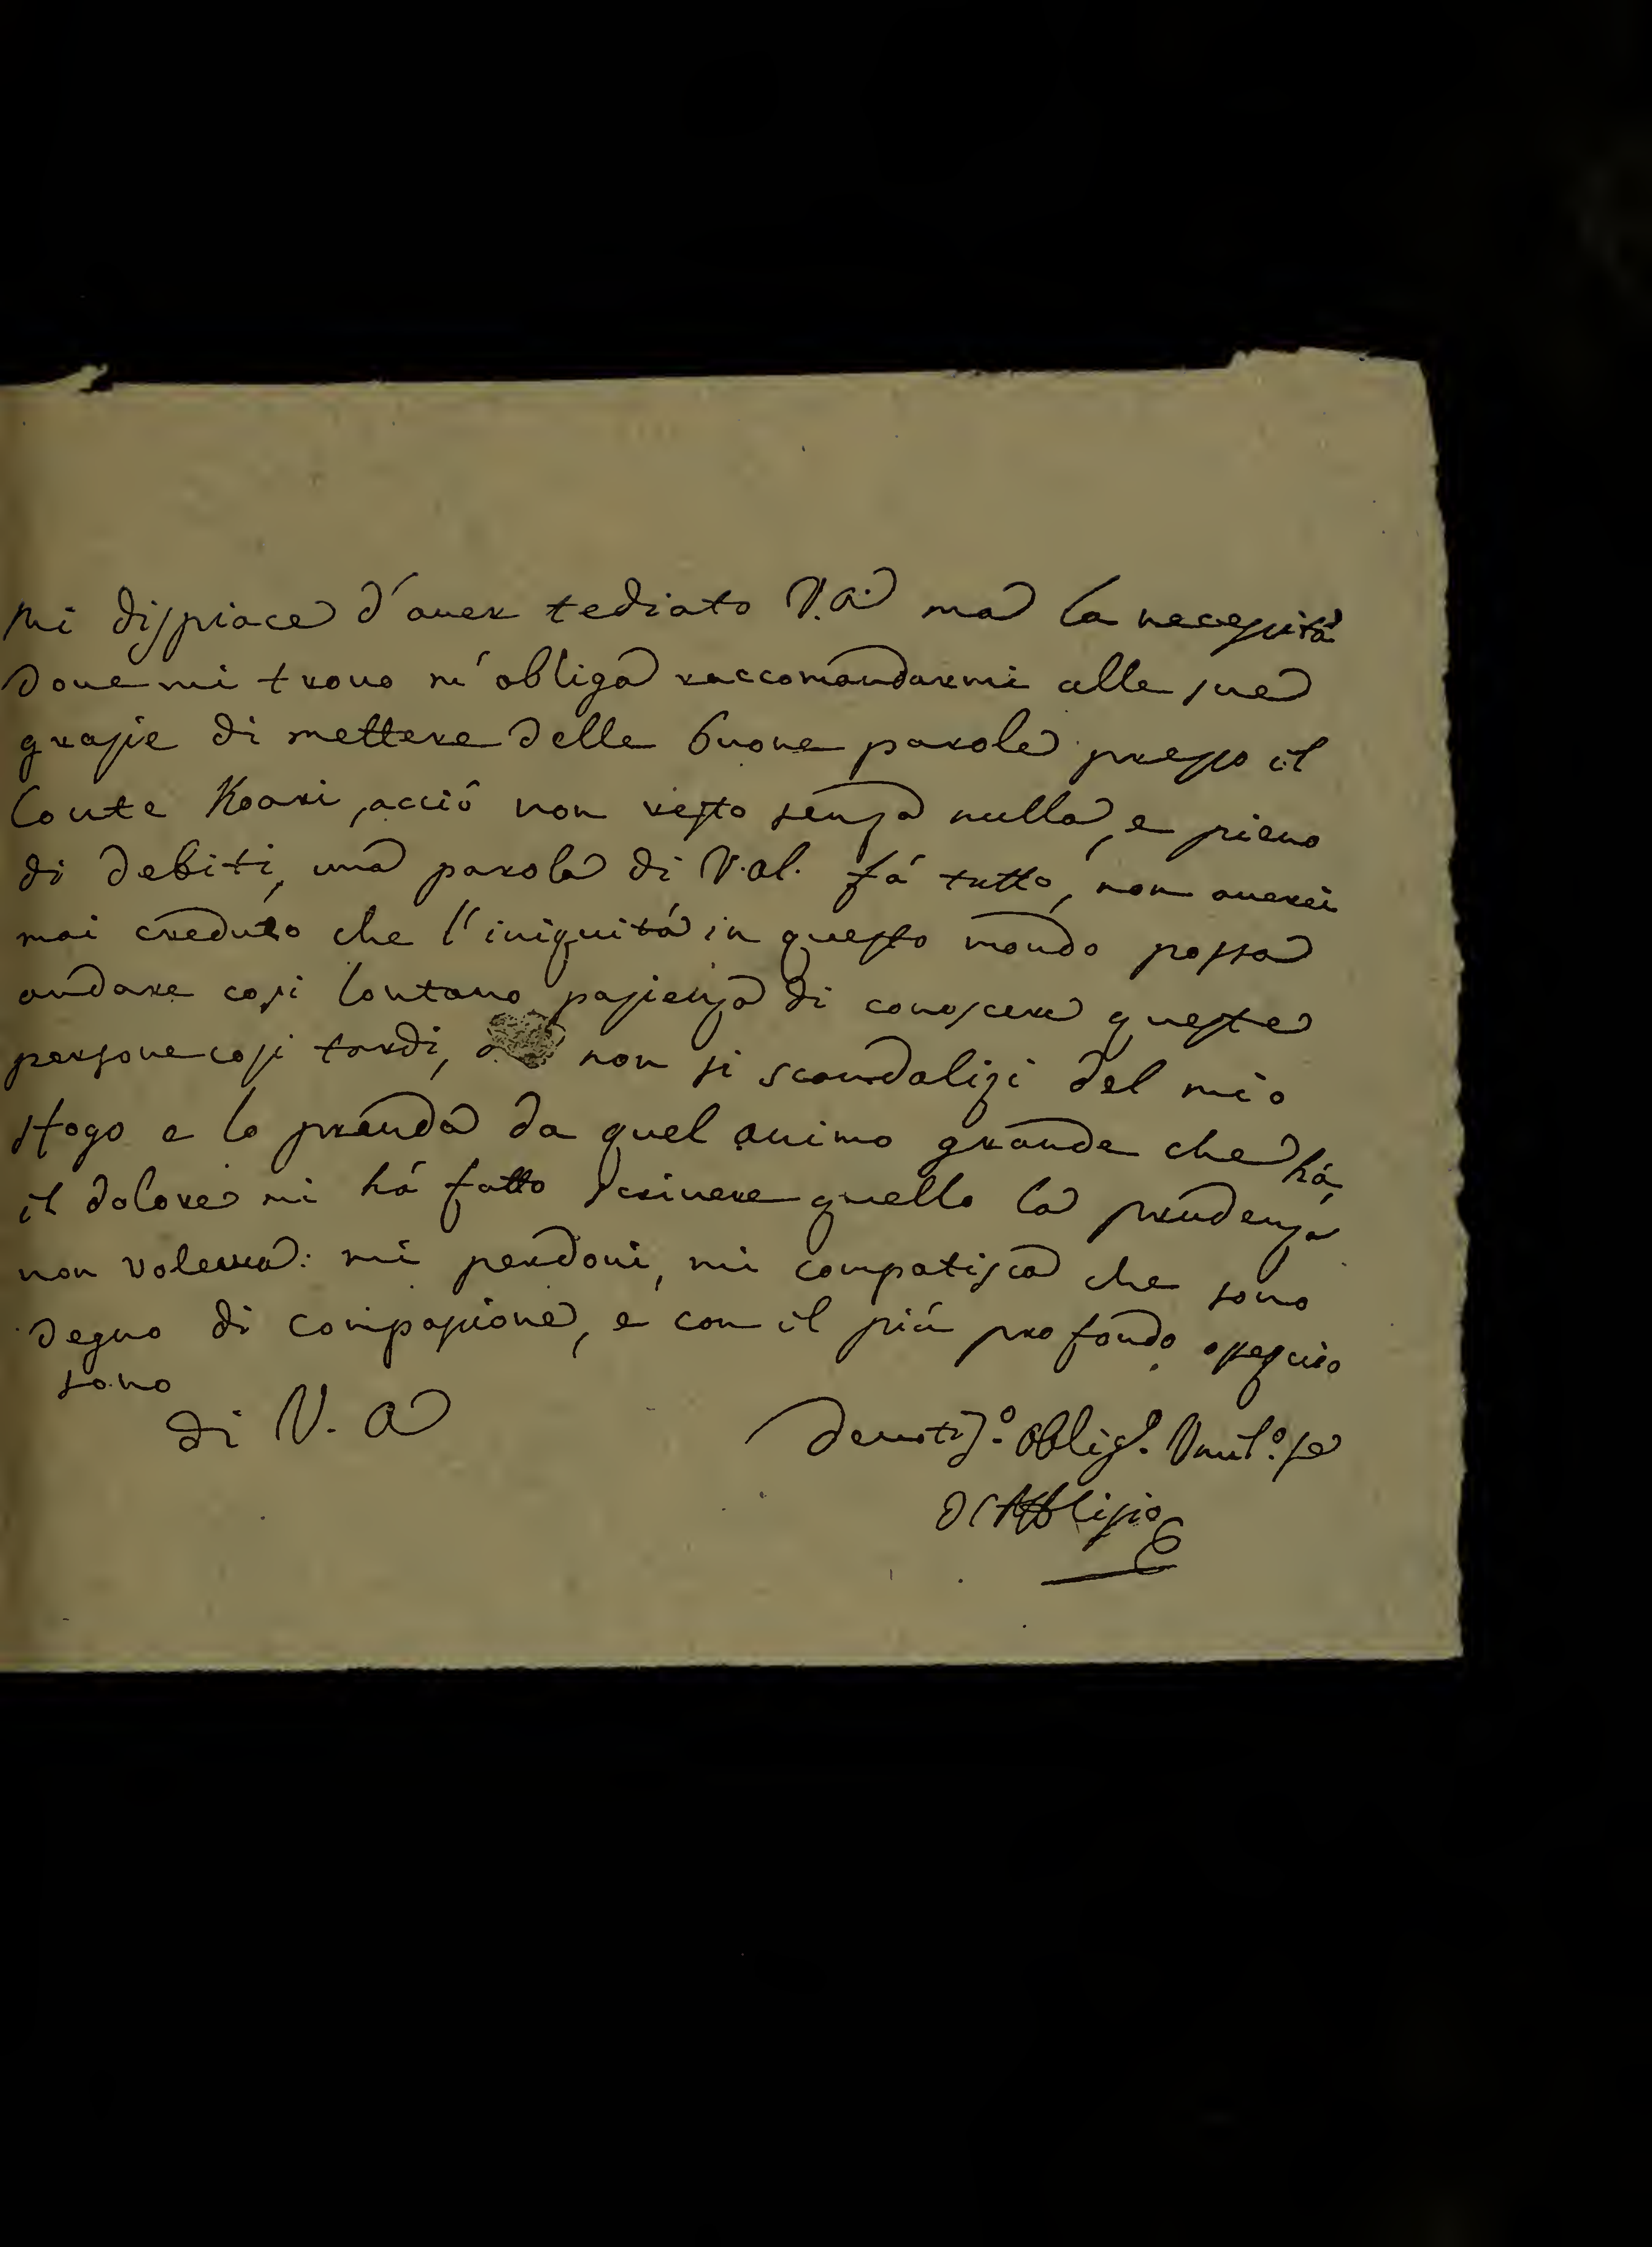 Mi dispiace d'auer tediato V.A. ma la necessità
doue mi trouo m'obliga raccomandarmi alle sue
grasie di mettere delle buone parole presso il
Conte Koari, acciò non resto sensa nulla, e pieno
di debiti, una parola di V.Al. fá tutto, non auerei
mai creduto che l'iniquitá in questo mondo possa
andare cosi lontano pasiensa di conoscere queste
persone cosi tardi, non si scandalizi del mio
sfogo e lo prenda da quel animo grande che há,
il dolore mi há fatto scriuere quello la prudensa
non voleua: mi perdoni, mi compatisca che sono
degno di compasione, e con il piú profondo ossequio
sono
di V. A
deuotis.º Oblig.º Umil.º se
d'Afflisio